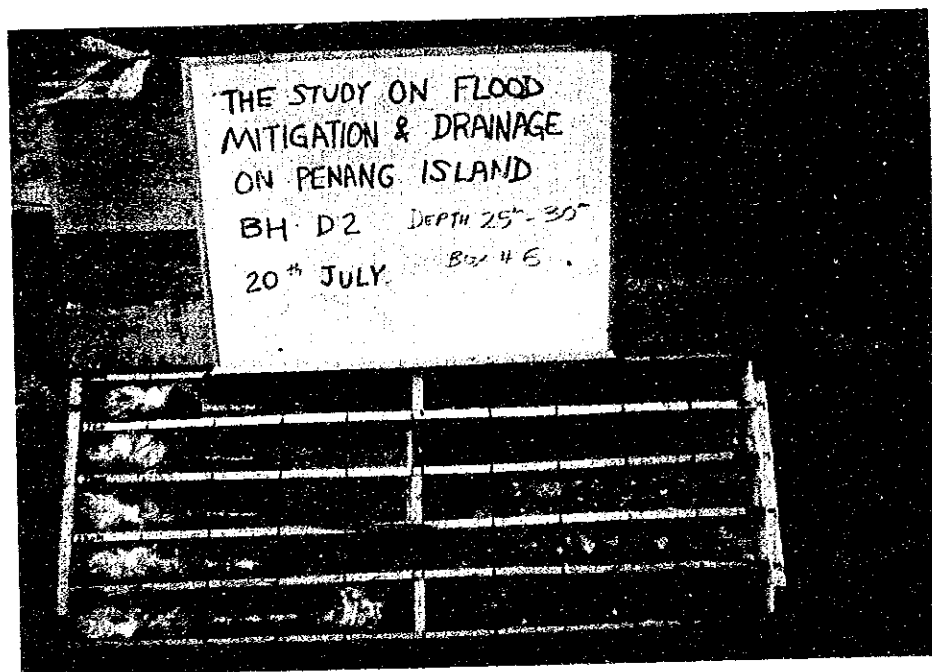 THE STUDY ON FLOOD
MITIGATION & DRAINAGE
ON PENANG ISLAND
BH D2 DEPTH 25m - 30m
20th JULY. Box # 6